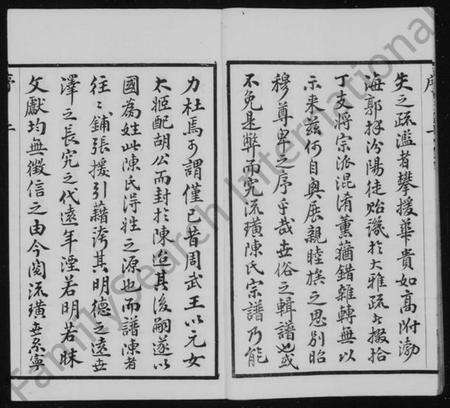 失之疏濫者攀援華貴如高附渤
海郭拜汾陽徒貽譏於大雅疏者掇拾
丁支將宗派混淆薰蕕錯雜轉無以
示来兹何自興展親睦族之思別昭
穆尊卑之序乎哉世俗之輯譜也或
不免是弊而究流璜陳氏宗譜乃能
力杜焉可謂僅已昔周武王以元女
太姬配胡公而封於陳迨其後嗣遂以
國為姓此陳氏得姓之源也而譜陳者
往〻鋪張援引藉誇其明德之遠世
澤之長究之代遠年湮若明若昧
文獻均無徵信之由今閱流璜世系寧
序 二
FamilySearch International